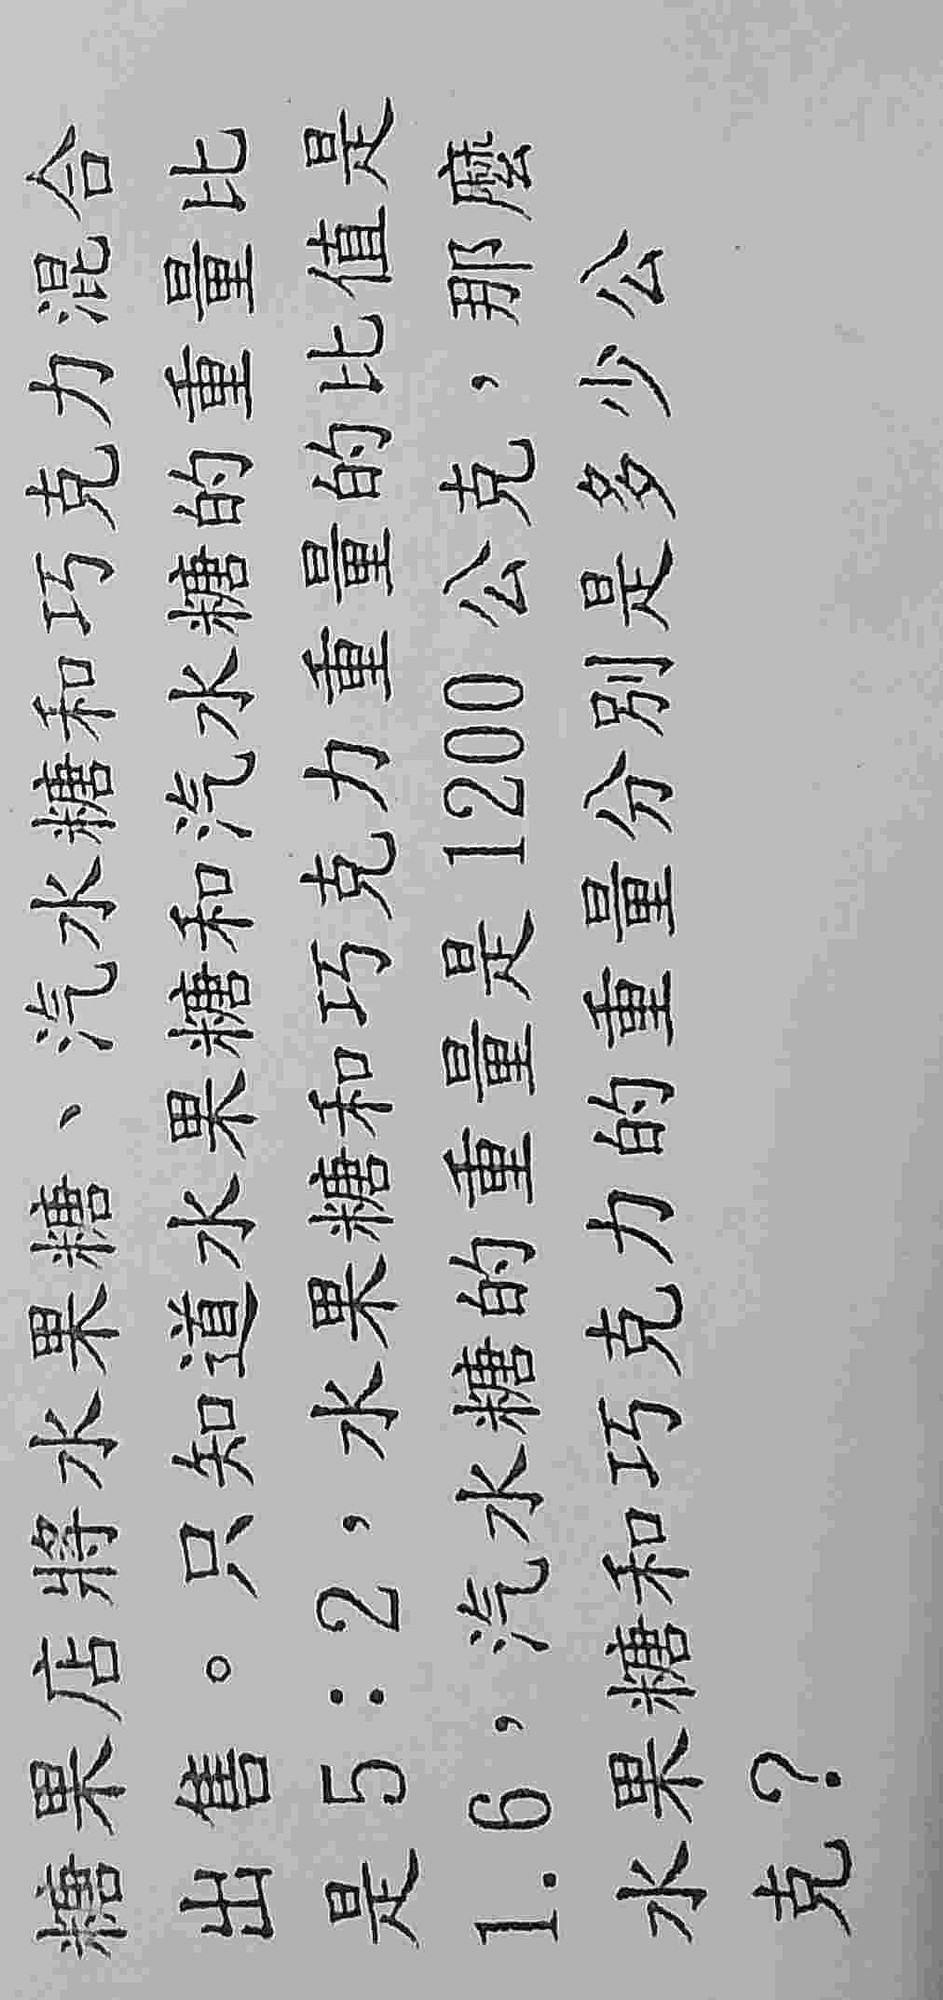 糖果店將水果糖、汽水糖和巧克力混合
出售。只知道水果糖和汽水糖的重量比
是5:2，水果糖和巧克力重量的比值是
1.6，汽水糖的重量是1200公克，那麼
水果糖和巧克力的重量分別是多少公
克？